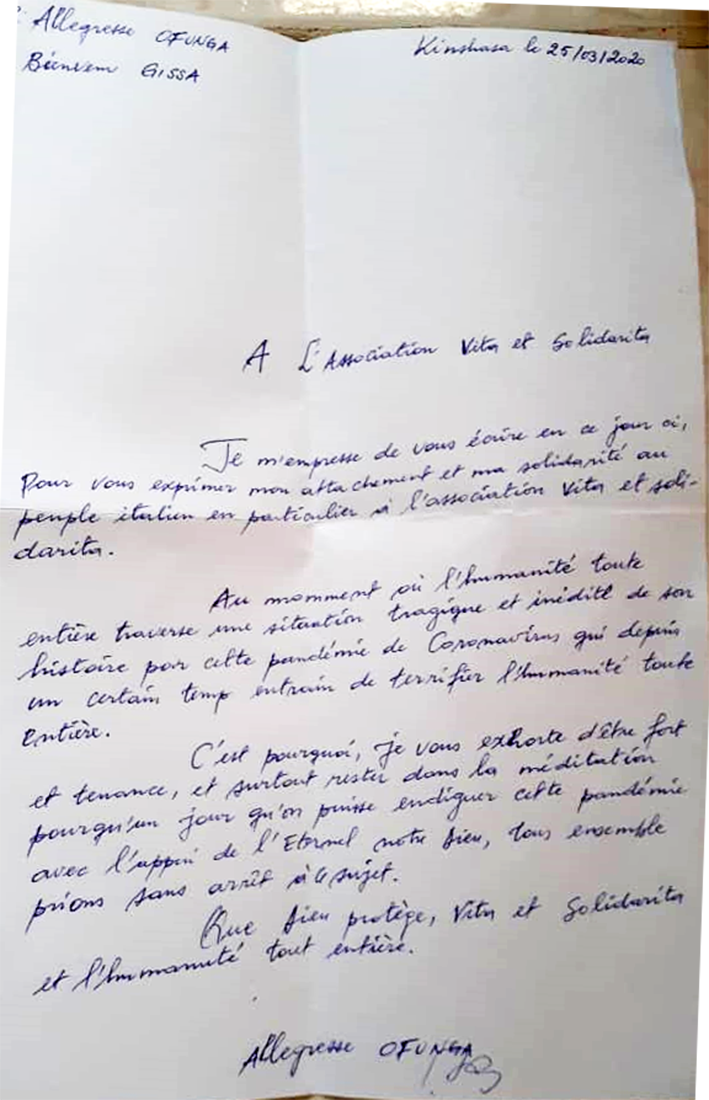 Allegresse OFUNGA
Bienvenu GISSA
Kinshasa le 25/03/2020
A L'Association Vita et Solidarita
Je m'empresse de vous écrire en ce jour ci,
Pour vous exprimer mon attachement et ma solidarité au
peuple italien en particulier à l'association Vita et soli-
darita.
Au momment où l'humanité toute
entière traverse une situation tragique et inédite de son
histoire par cette pandémie de Coronavirus qui depuis
un certain temp entrain de terrifier l'humanité toute
entière.
C'est pourquoi, je vous exhorte d'être fort
et tenance, et surtout rester dans la méditation
pourqu'un jour qu'on puisse endiguer cette pandémie
avec l'appui de l'Eternel notre Dieu, tous ensemble
prions sans arrêt à ce sujet.
Que Dieu protège, Vita et Solidarita
et l'humanité tout entière.
Allegresse OFUNGA